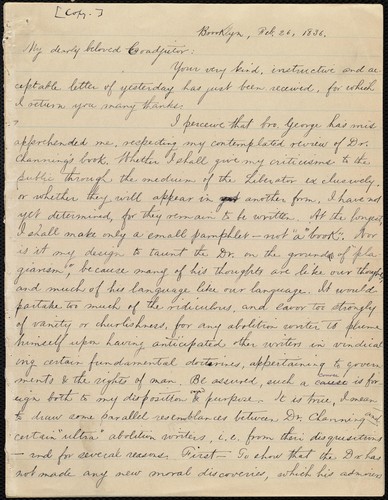 [Copy.]
Brooklyn, Feb. 26, 1836.
My dearly beloved Coadjutor:
Your very kind, instructive and ac
ceptable letter of yesterday has just been received, for which
I return you many thanks.
I perceive that bro. George has mis
apprehended me, respecting my contemplated review of Dr.
Channing's book. Whether I shall give my criticisms to the
public through the medium of the Liberator exclusively,
or whether they will appear in another form, I have not
yet determined, for they remain to be written. At the longest,
I shall make only a small pamphlet — not "a book". Nor
is it my design to taunt the Dr. on the grounds of "pla
giarism", because many of his thoughts are like our thoughts
and much of his language like our language. It would
partake too much of the ridiculous, and savor too strongly
of vanity or churlishness, for any abolition writer to plume
himself upon having anticipated other writers in vindicat
ing certain fundamental doctrines, appertaining to govern
ments & the rights of man. Be assured, such a course is for
eign both to my disposition & purpose. It is true, I mean
to draw some parallel resemblances between Dr. Channing and
certain "ultra" abolition writers, i.e. from their disquisitions
— and for several reasons. First — To show that the Dr has
not made any new moral discoveries, which his admirers